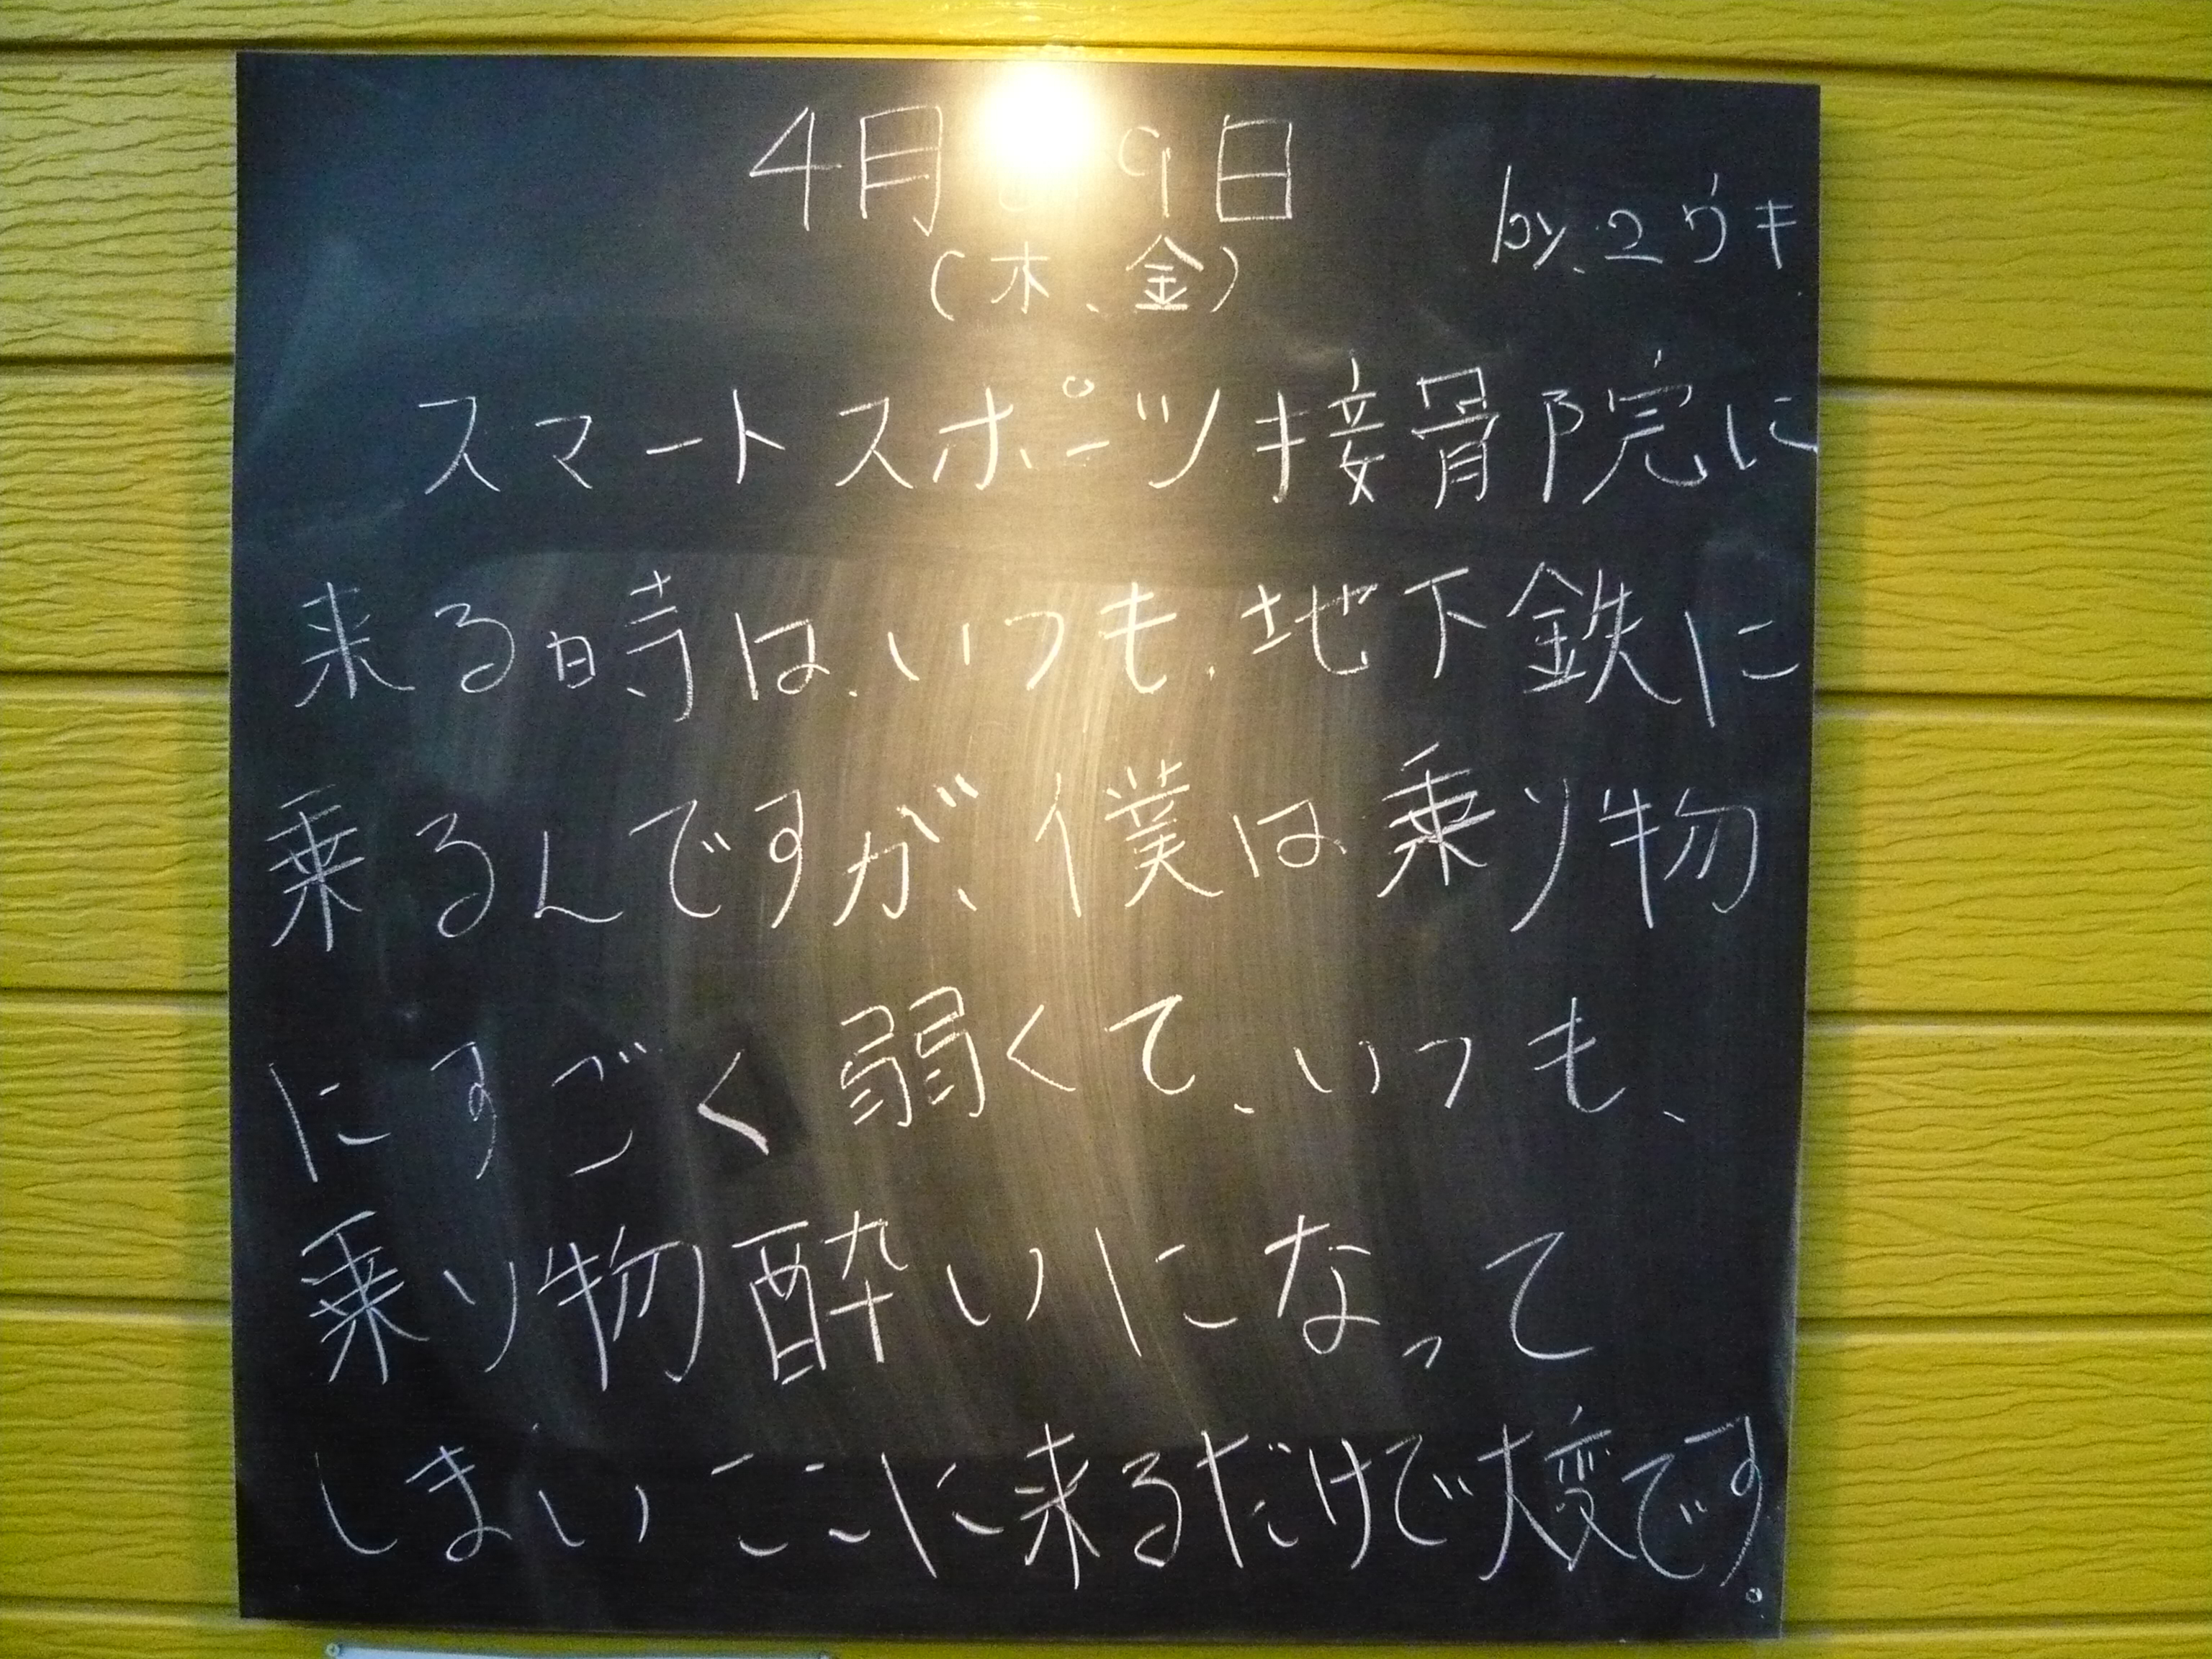 4月 9日
by.ユウキ
(木、金)
スマートスポーツ接骨院に
来る時は、いつも、地下鉄に
乗るんですが、僕は乗り物
にすごく弱くて、いつも、
乗り物酔いになって
しまいここに来るだけで大変です。